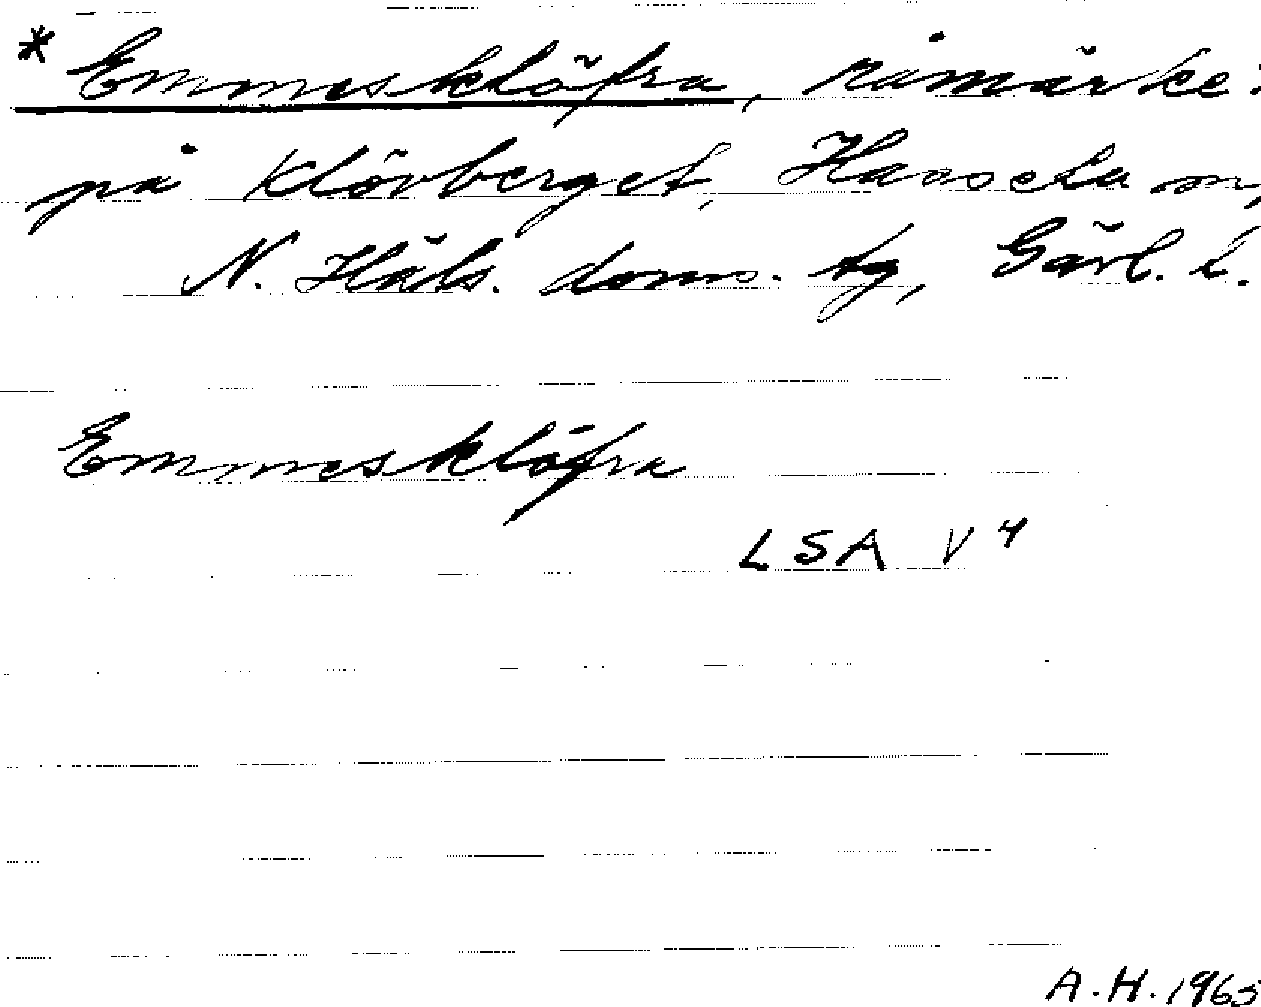 * Emmesklöfra, råmärke:
på Klövberget, Hassela sn,
N. Häls. doms. tg, Gävl. l.
Emmesklöfra
LSA V4
A.H. 1965